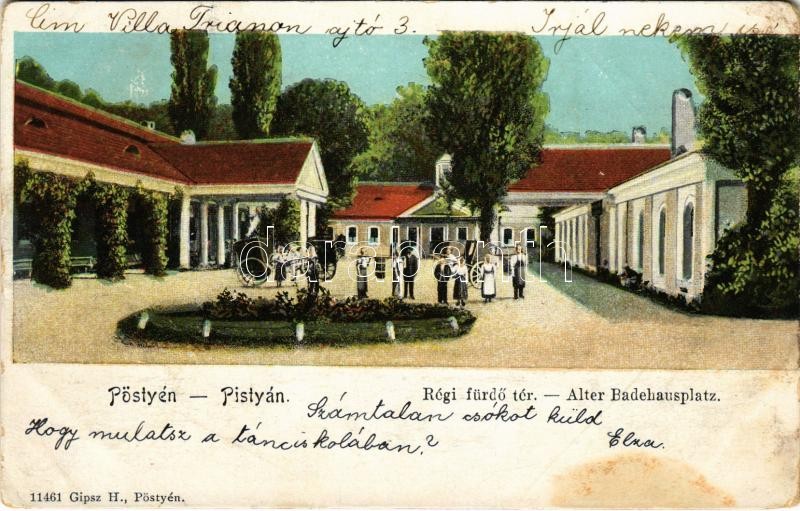 Cim Villa Trianon ajtó 3. Irjál nekem
darabanth
Pöstyén — Pistyán. Régi fürdő tér. — Alter Badehausplatz.
Számtalan csókot küld
Hogy mulatsz a tánciskolában? Elza.
11461 Gipsz H., Pöstyén.